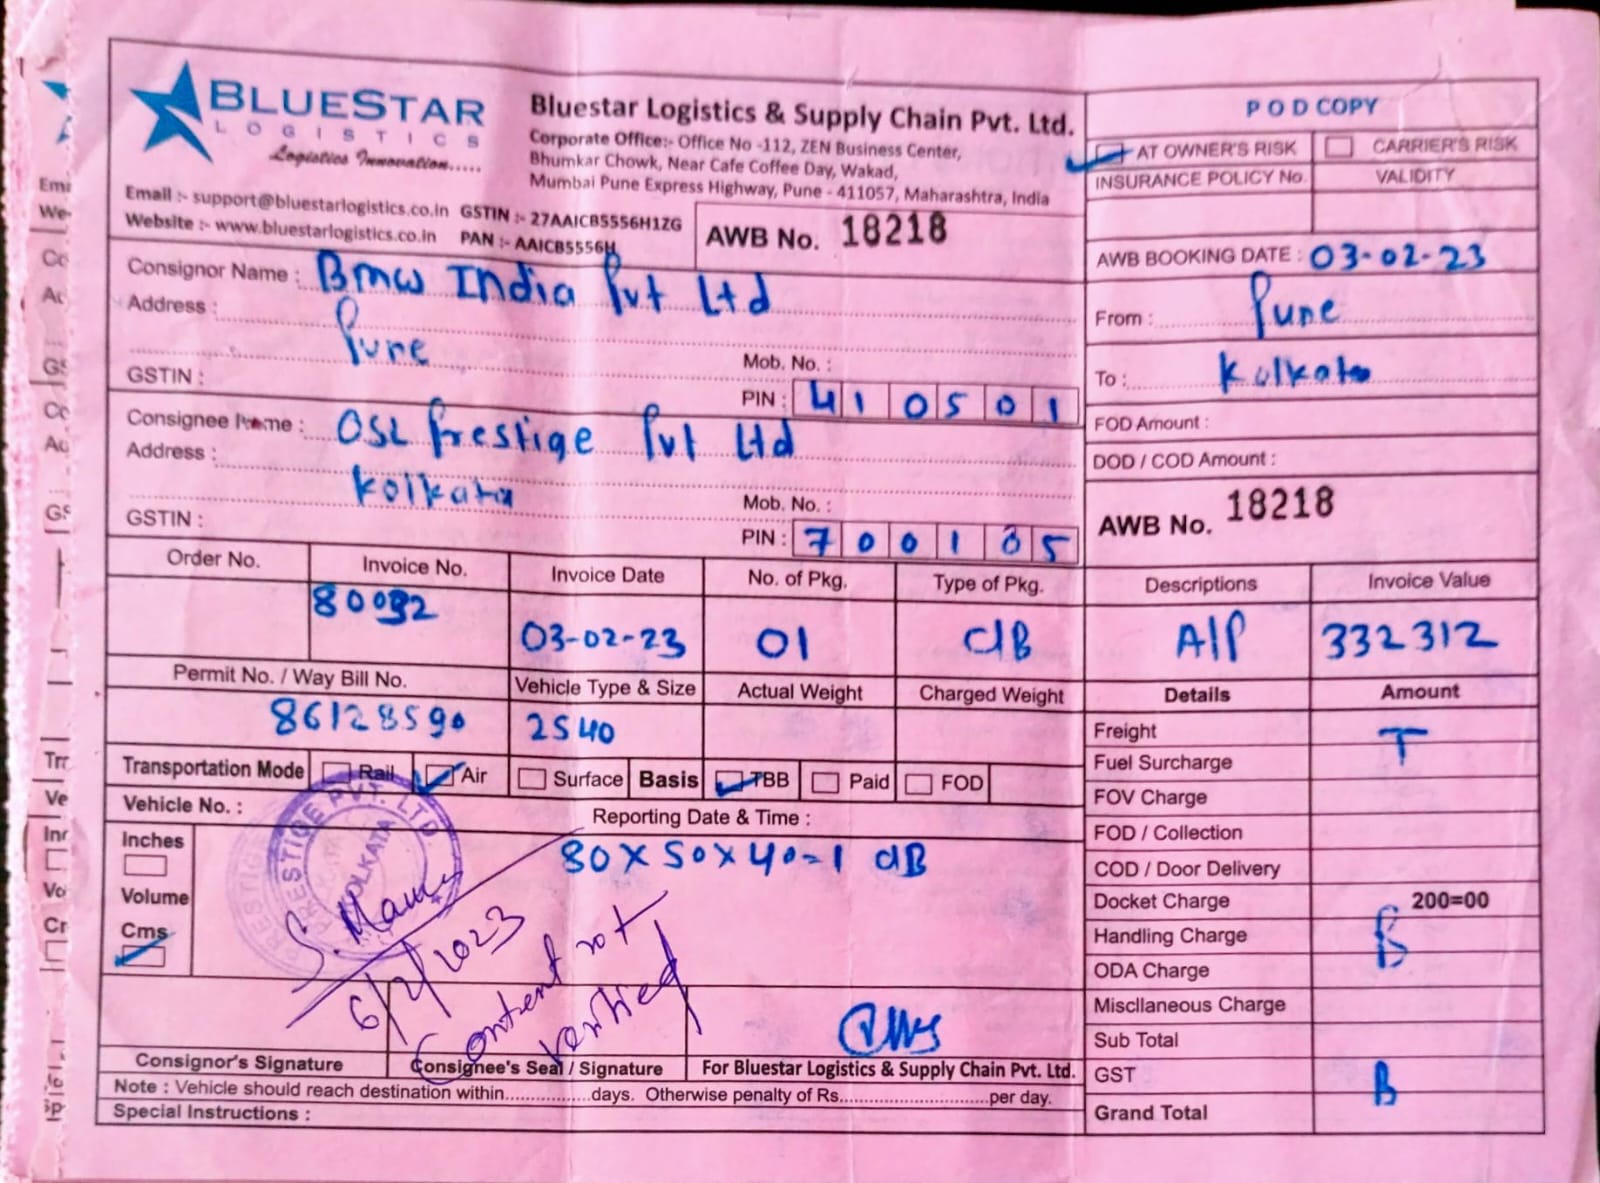 BLUESTAR
LOGISTICS
Logistics Innovation.....
Bluestar Logistics & Supply Chain Pvt. Ltd.
Corporate Office:- Office No -112, ZEN Business Center,
Bhumkar Chowk, Near Cafe Coffee Day, Wakad,
Mumbai Pune Express Highway, Pune - 411057, Maharashtra, India
Email :- support@bluestarlogistics.co.in GSTIN :- 27AAICB5556H1ZG
Website :- www.bluestarlogistics.co.in PAN :- AAICB5556H
AWB No. 18218
POD COPY
AT OWNER'S RISK CARRIER'S RISK
INSURANCE POLICY No. VALIDITY
AWB BOOKING DATE : 03-02-23
From : Pune
To : Kolkata
FOD Amount :
DOD / COD Amount :
AWB No. 18218
Consignor Name : Bmw India Pvt Ltd
Address :
Pune
Mob. No. :
GSTIN :
PIN : 410501
Consignee Name : OSL Prestige Pvt Ltd
Address :
Kolkata
Mob. No. :
GSTIN :
PIN : 700105
Order No. Invoice No. Invoice Date No. of Pkg. Type of Pkg. Descriptions Invoice Value
03-02-23 01 CIB A/P 332312
Permit No. / Way Bill No. Vehicle Type & Size Actual Weight Charged Weight Details Amount
86128590 2540
Freight T
Fuel Surcharge
FOV Charge
FOD / Collection
COD / Door Delivery
Docket Charge 200=00
Handling Charge B
ODA Charge
Miscllaneous Charge
Sub Total
GST B
Grand Total
Transportation Mode Rail Air Surface Basis TBB Paid FOD
Vehicle No. : Reporting Date & Time :
Inches
Volume
Cms
80 x 50 x 40 = 1 CIB
PRESTIGE PVT. LTD.
KOLKATA
6/2/2023
Content not
verified
Consignor's Signature Consignee's Seal / Signature For Bluestar Logistics & Supply Chain Pvt. Ltd.
Note : Vehicle should reach destination within...............days. Otherwise penalty of Rs..............................per day.
Special Instructions :